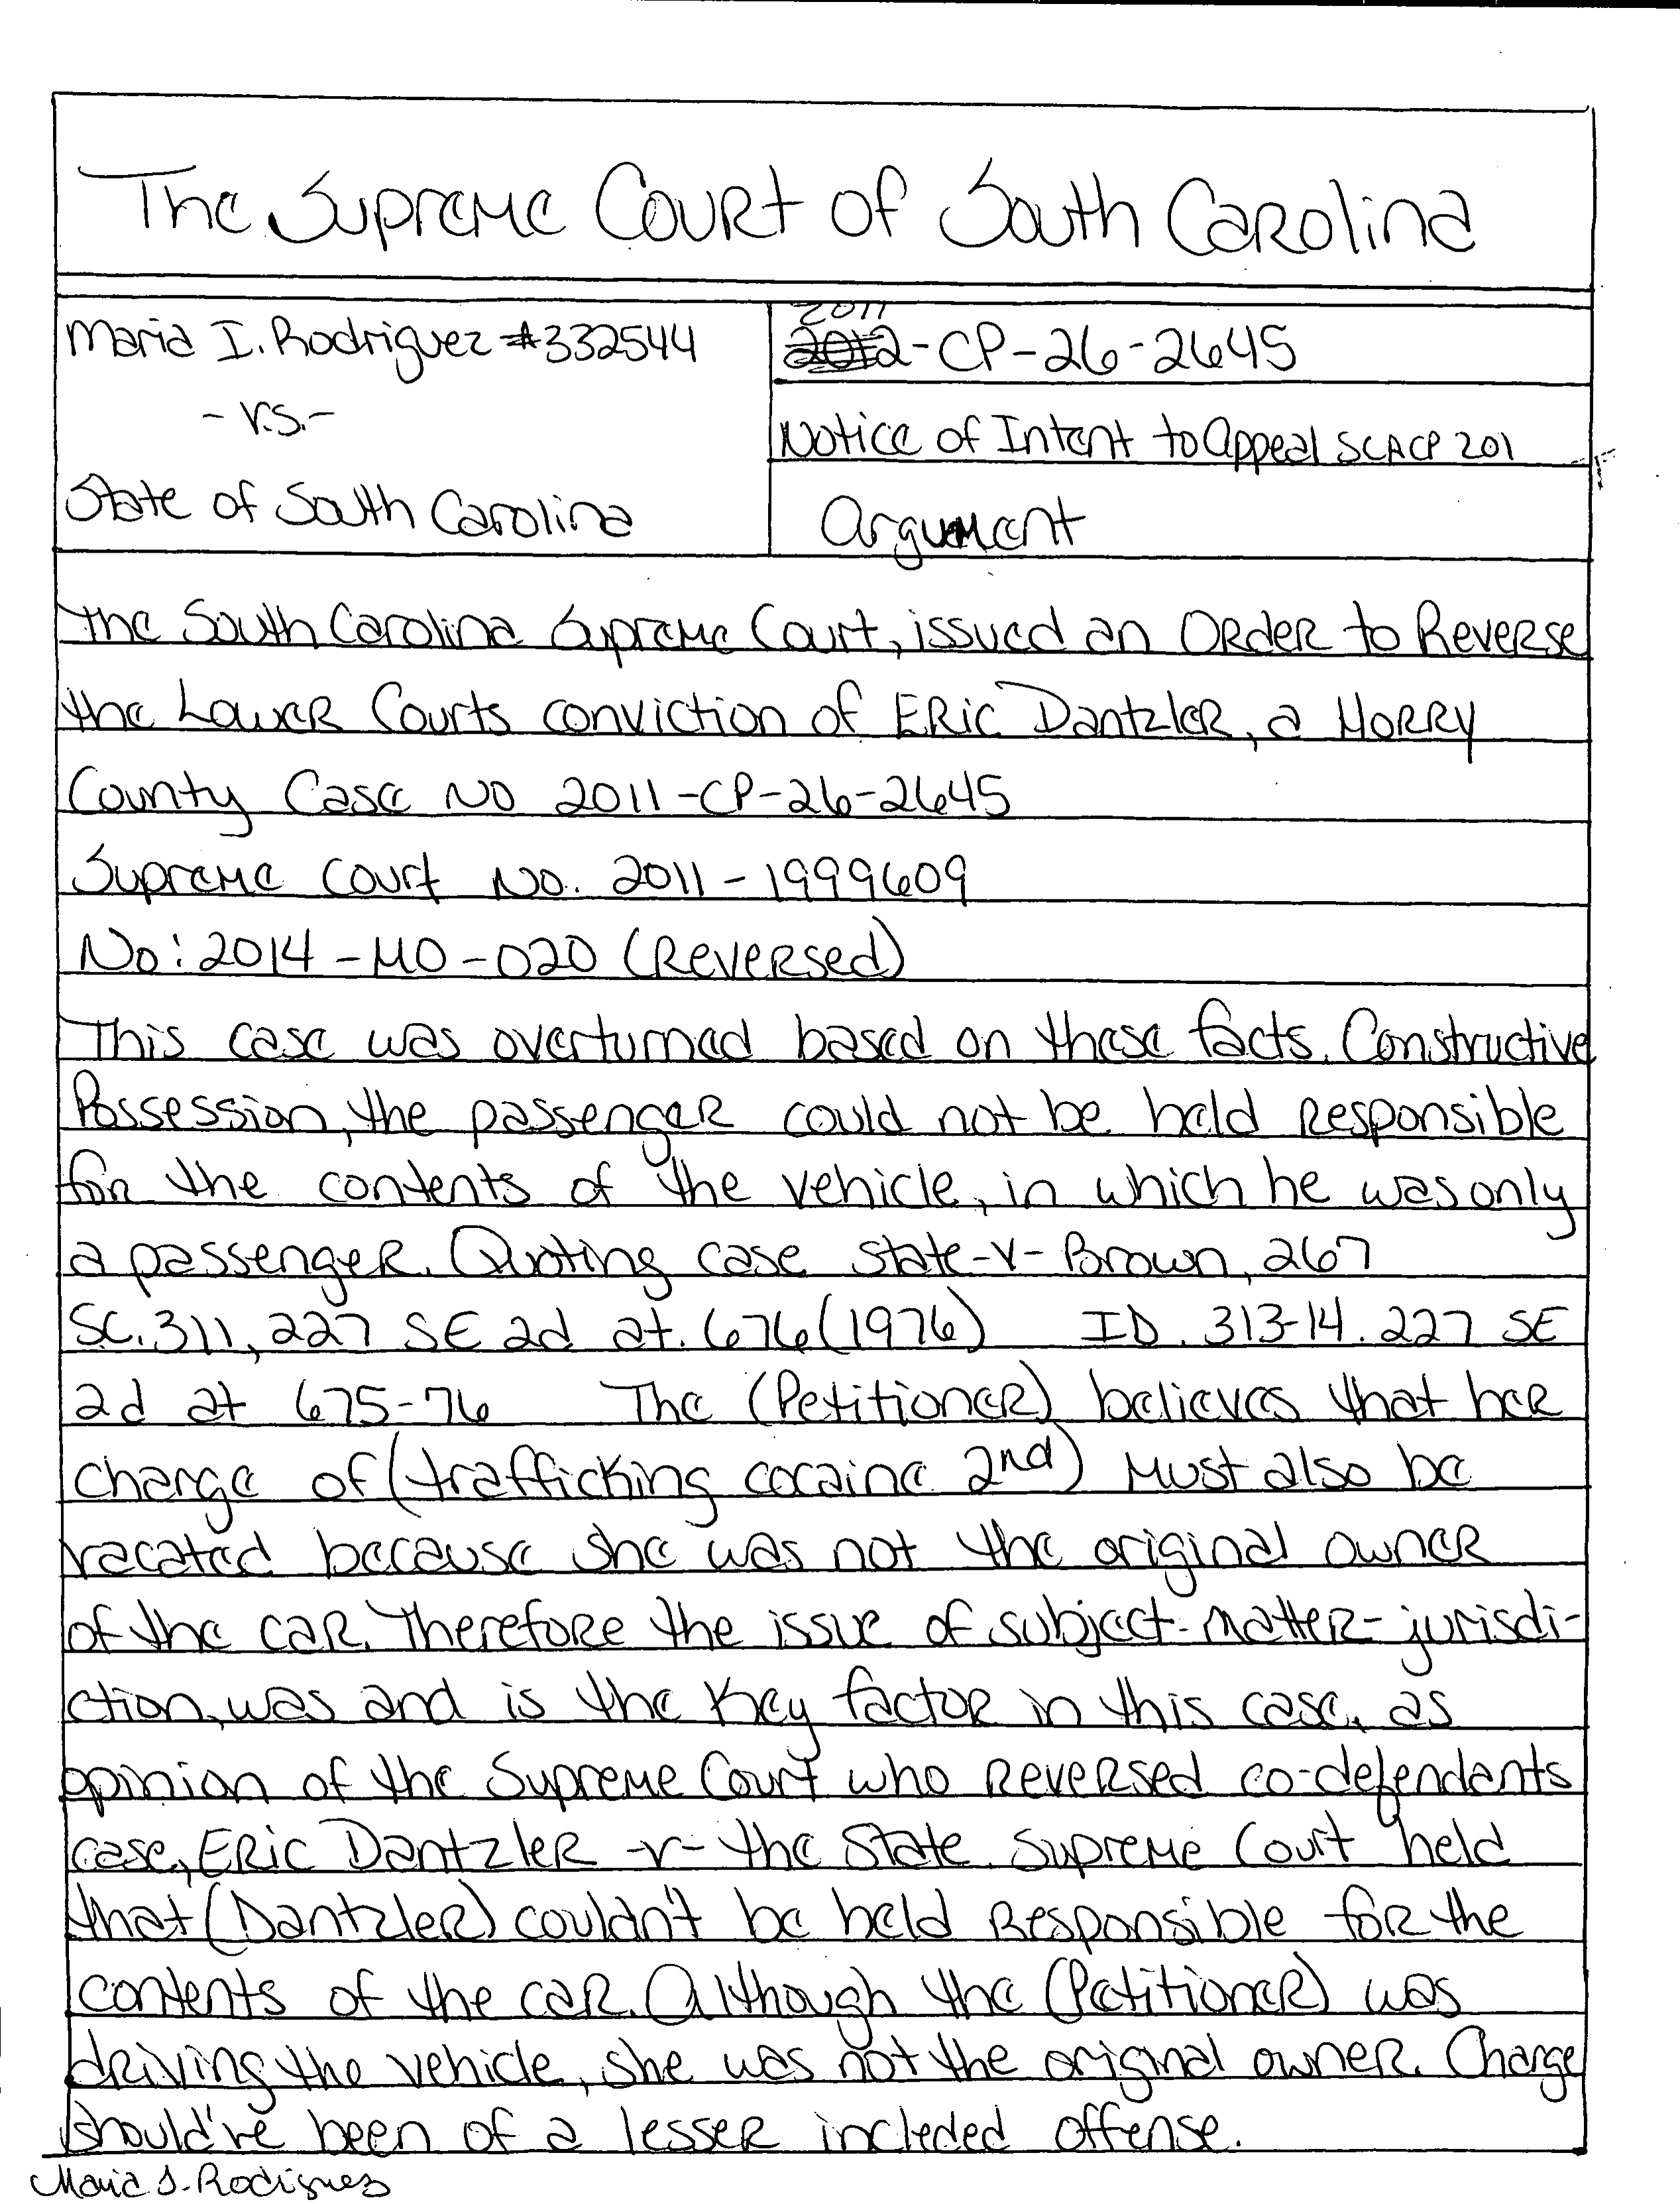 The Supreme Court of South Carolina
Maria I. Rodriguez #332544
-v.s.-
State of South Carolina
2011
2-CP-26-2645
Notice of Intent to Appeal SCACP 201
Argument
The South Carolina Supreme Court, issued an Order to Reverse
the Lower Courts conviction of Eric Dantzler, a Horry
County Case No 2011-CP-26-2645
Supreme Court No. 2011-1999609
No: 2014-MO-020 (Reversed)
This case was overturned based on these facts. Constructive
Possession, the passenger could not be held responsible
for the contents of the vehicle, in which he was only
a passenger. Quoting case State-v-Brown, 267
SC. 311, 227 SE 2d at. 676 (1976) ID. 313-14. 227 SE
2d at 675-76 The (Petitioner) believes that her
charge of (trafficking cocaine 2nd) must also be
vacated because she was not the original owner
of the car. Therefore the issue of subject-matter-jurisdi-
ction, was and is the key factor in this case, as
opinion of the Supreme Court who reversed co-defendants
case, Eric Dantzler -v- the State. Supreme Court held
that (Dantzler) couldn't be held responsible for the
contents of the car. Although the (Petitioner) was
driving the vehicle, she was not the original owner. Charge
should've been of a lesser incleded offense.
Maria I. Rodriguez